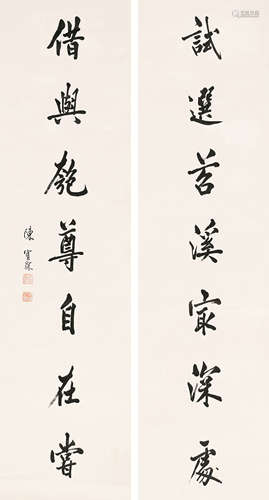 試選苕溪㝡深處
借與匏尊自在嘗
陳寶琛